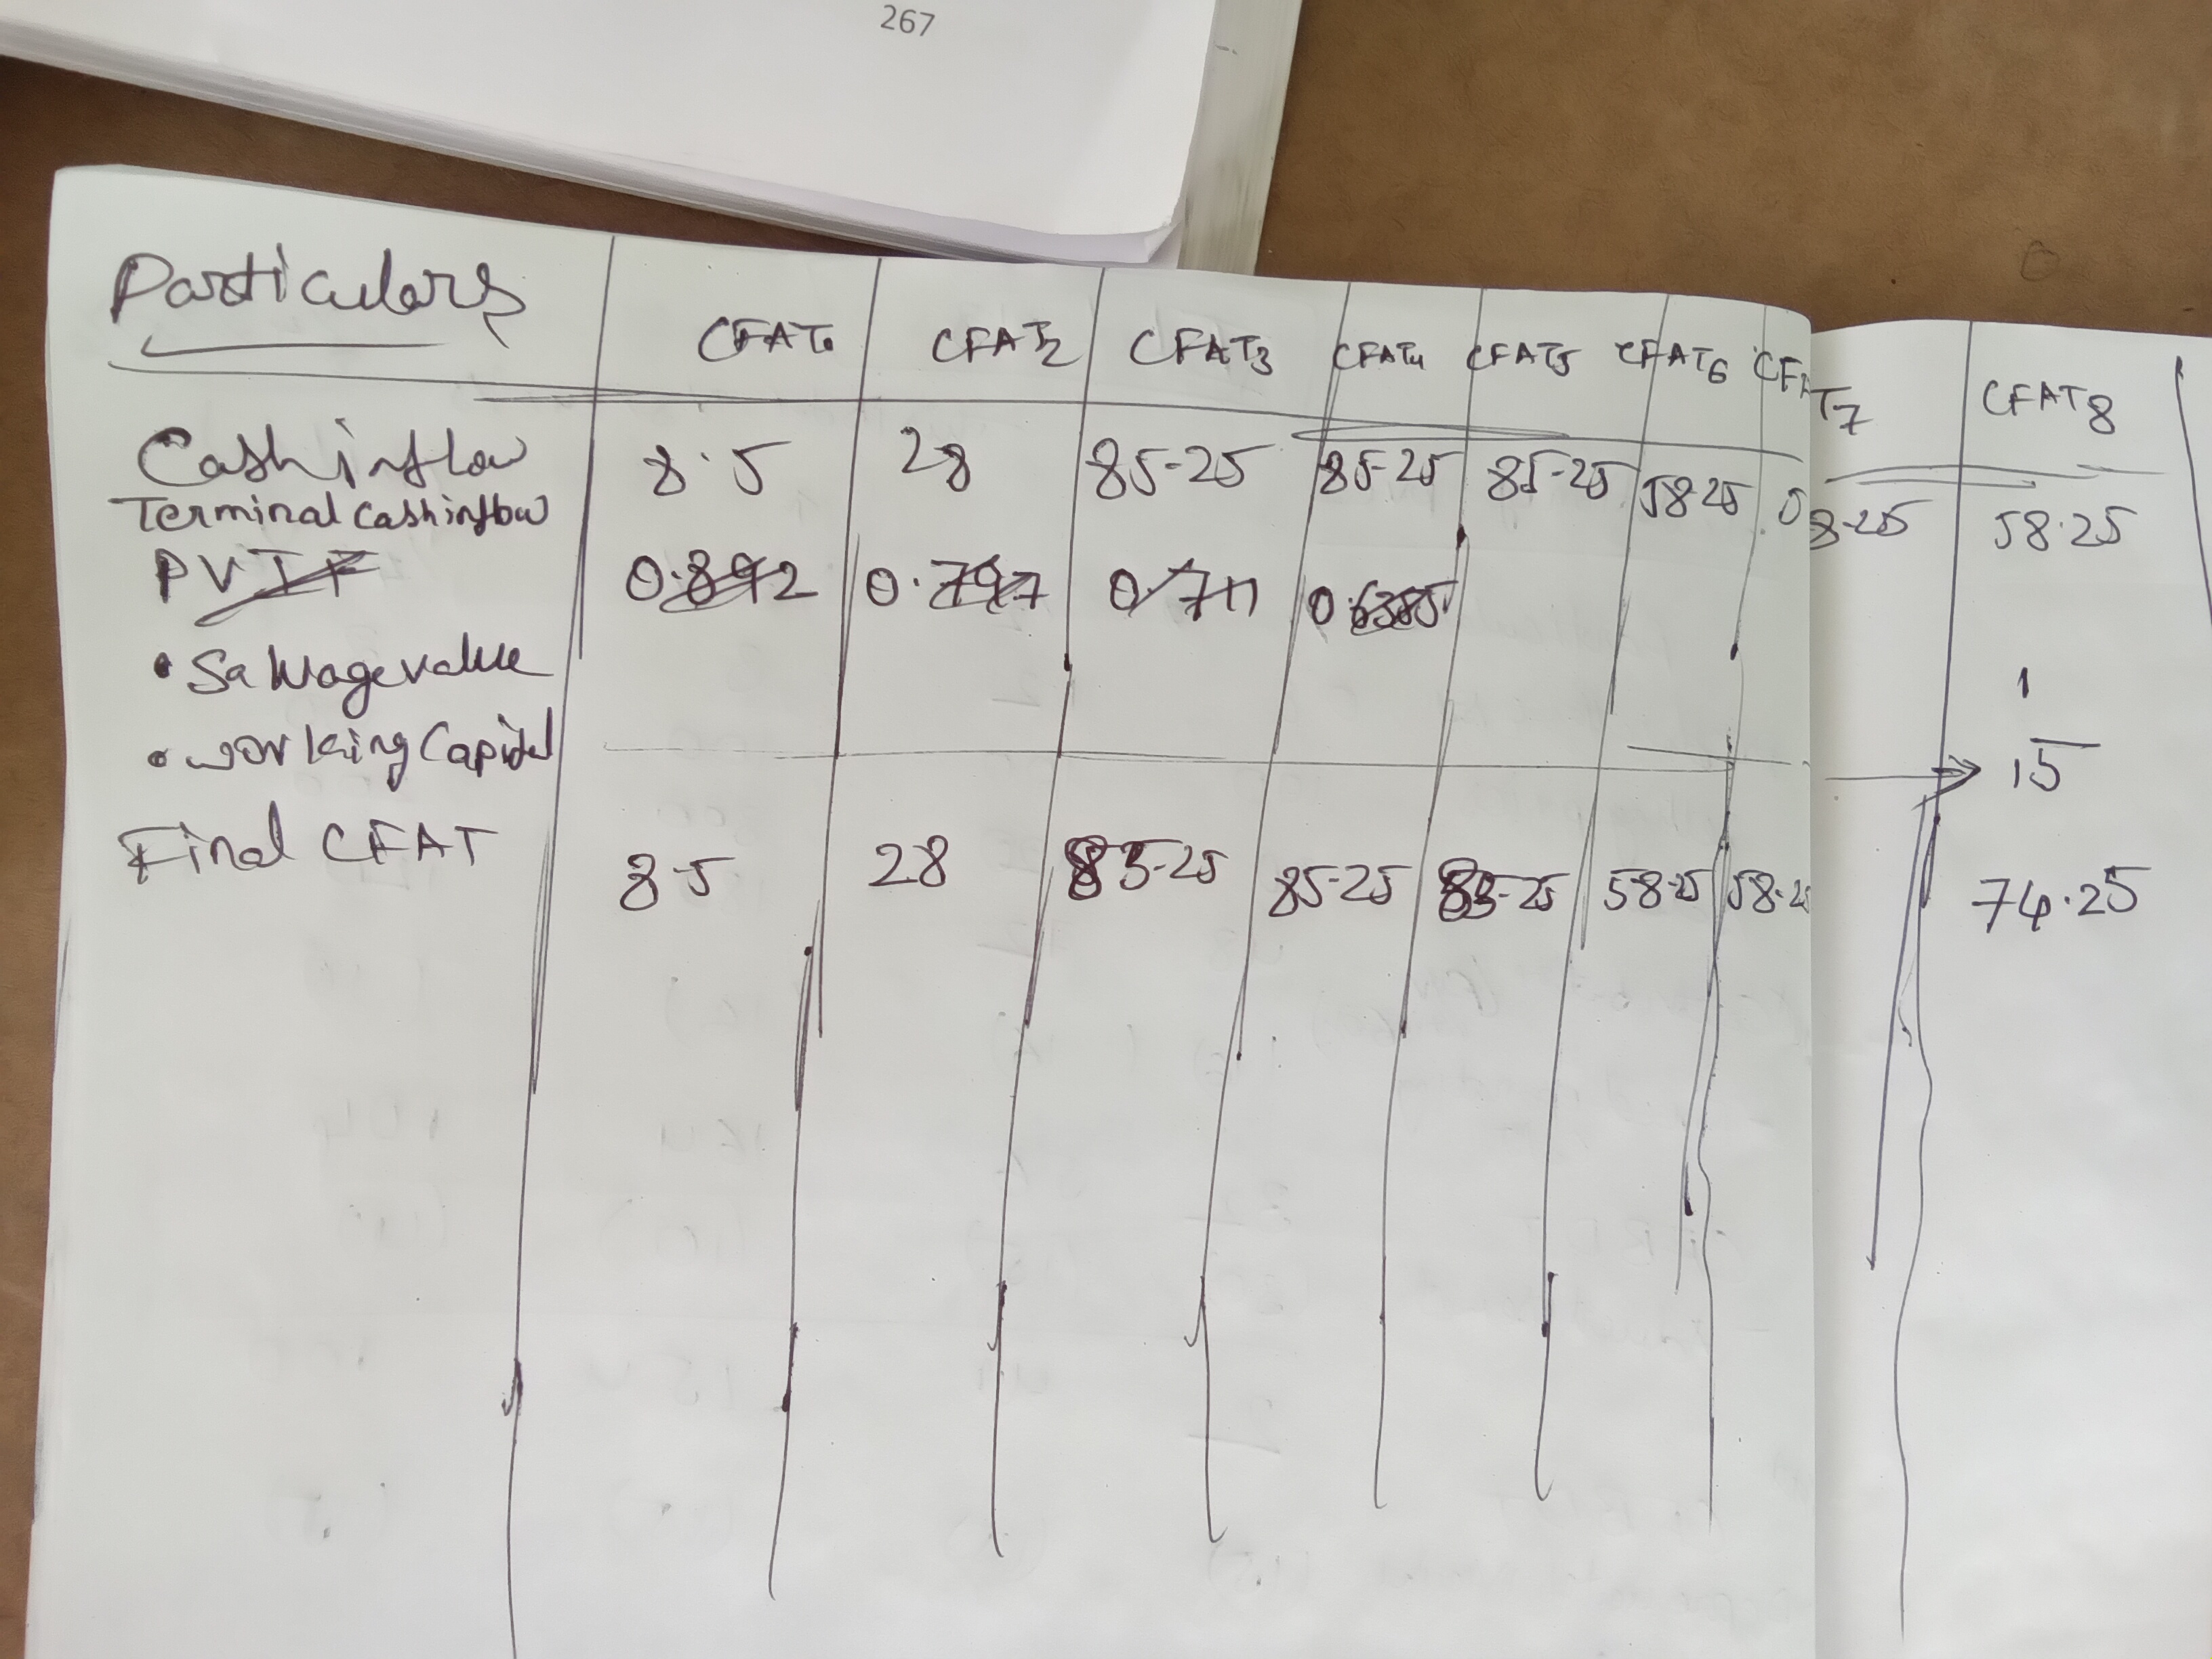 267
Particulars CFAT1 CFAT2 CFAT3 CFAT4 CFAT5 CFAT6 CFAT7 CFAT8
Cash inflow 8.5 28 85-25 85-25 85-25 58.25 58-25 58.25
Terminal Cash inflow
PVIF 0.892 0.797 0.711 0.6385
• Salvage value 1
• working Capital 15
Final CFAT 8.5 28 85-25 85-25 85-25 58.25 58.25 74.25